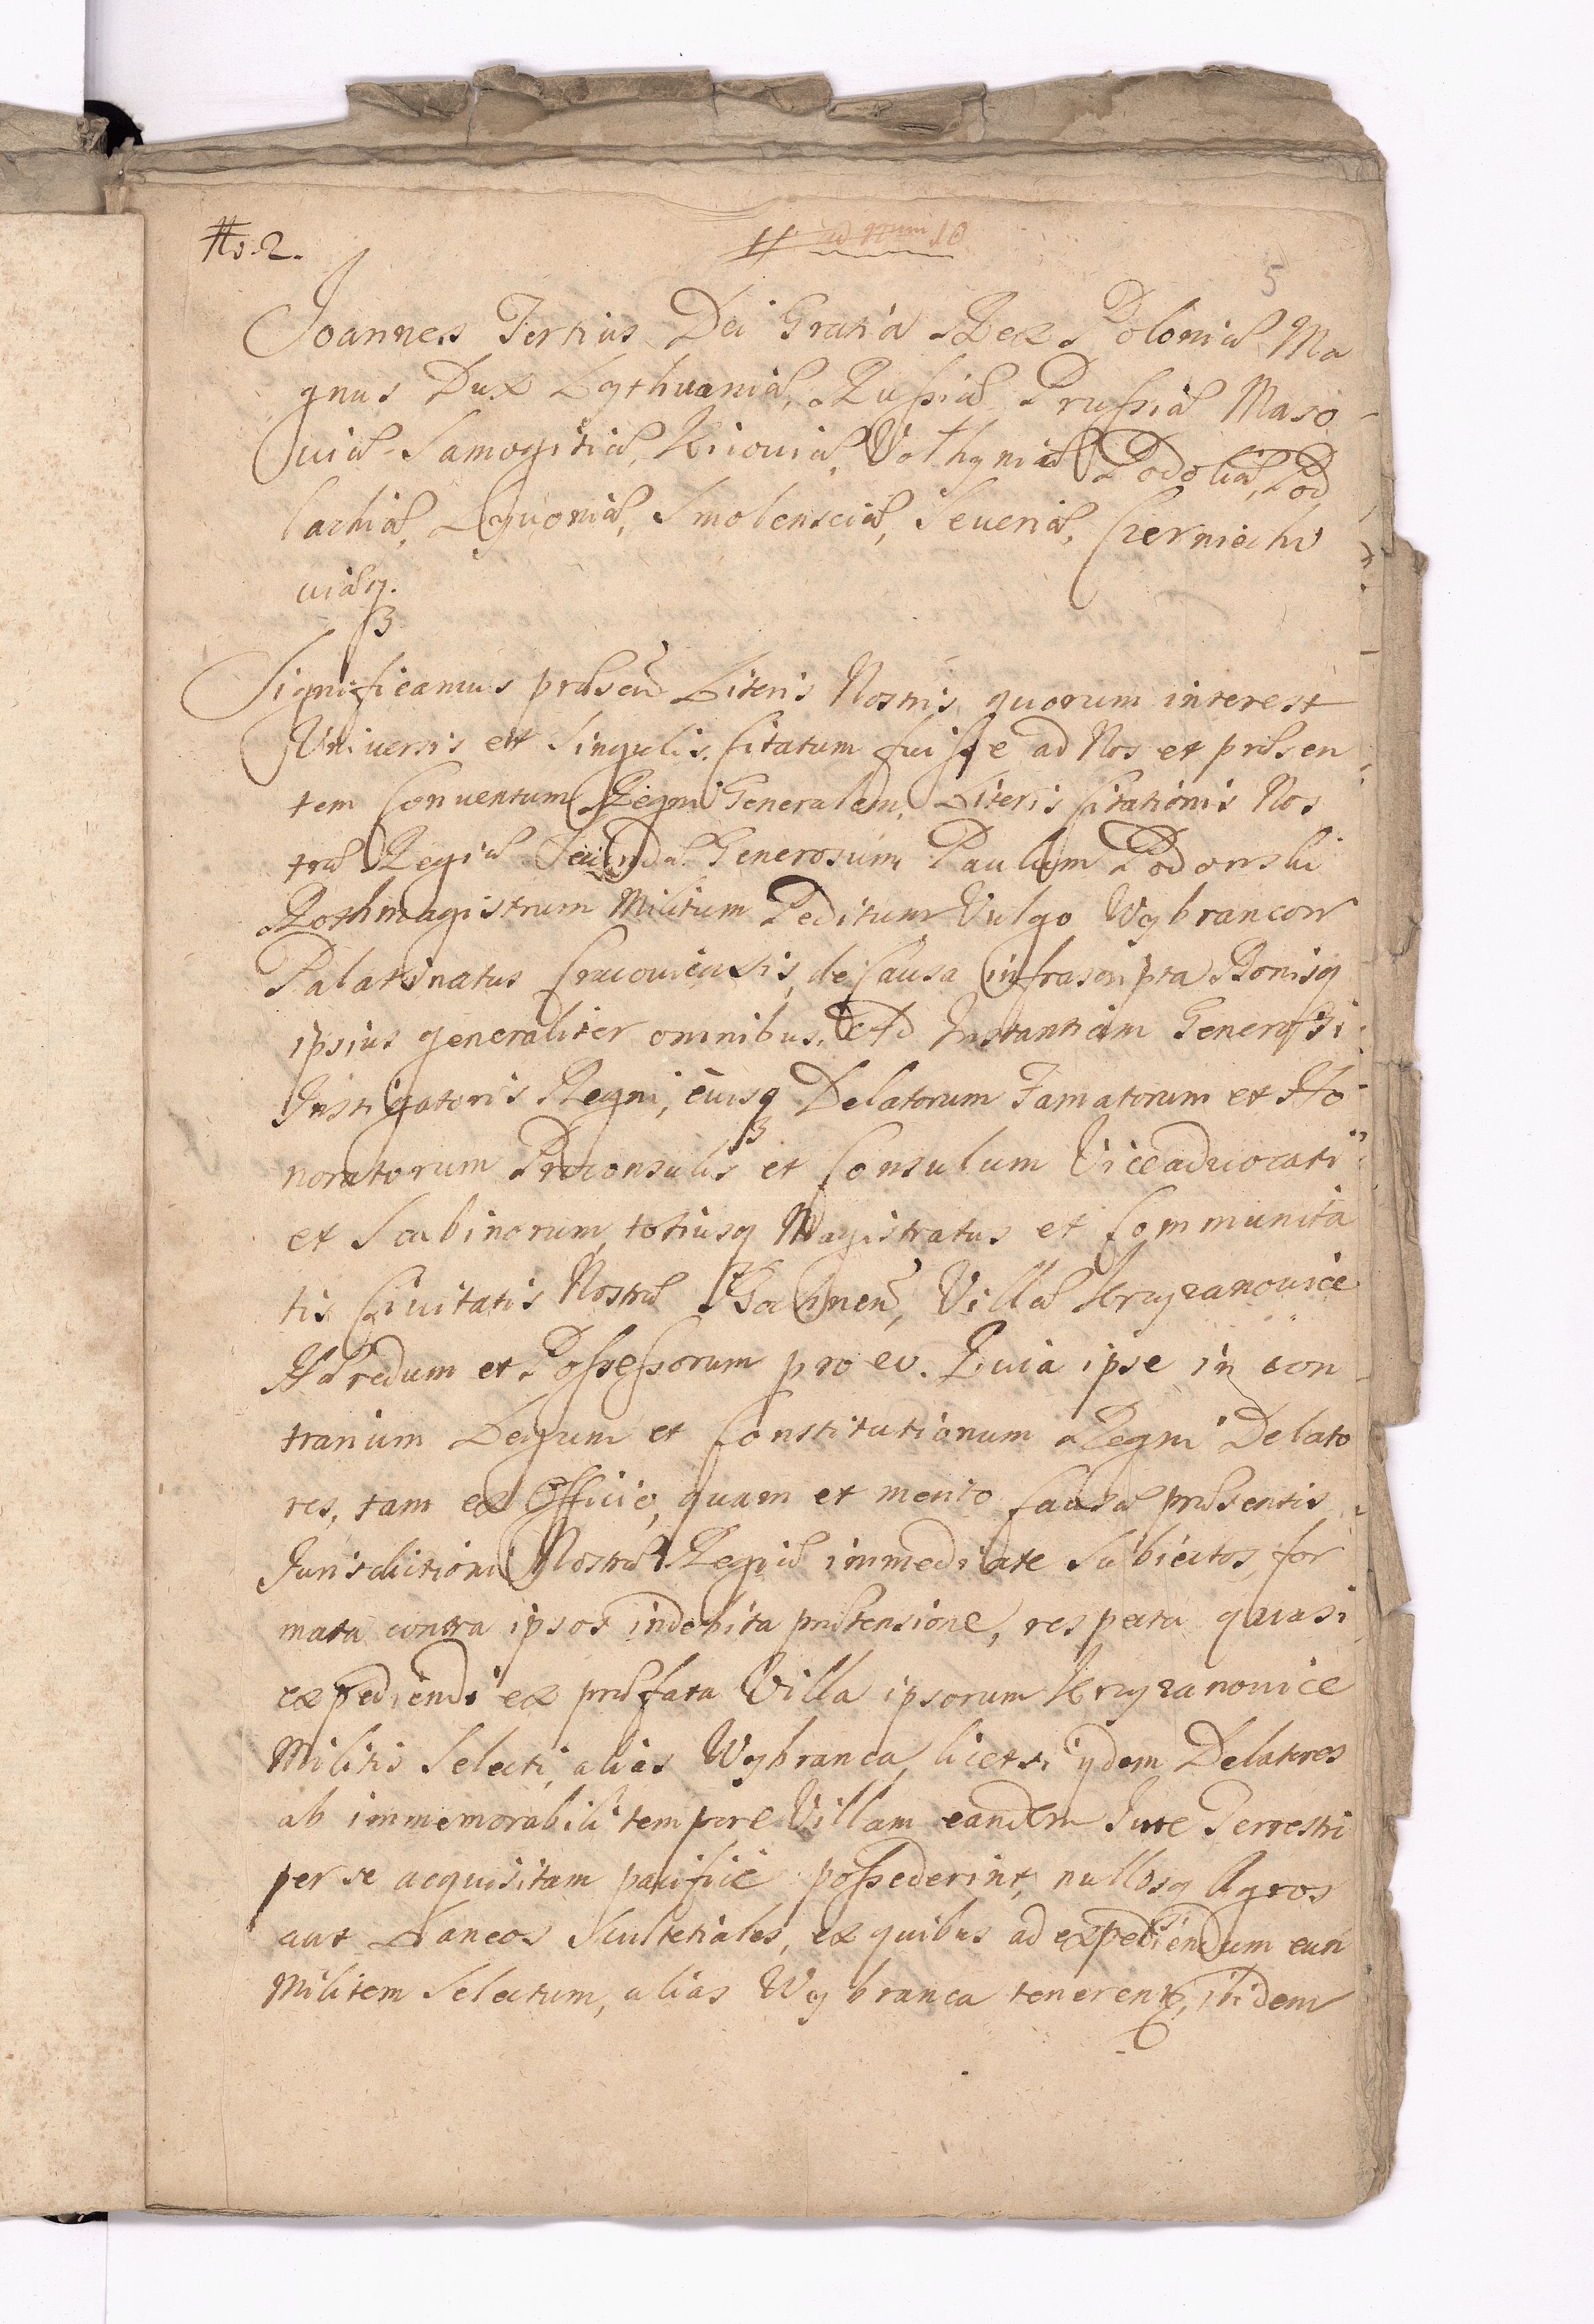 No 2.
ad Num 10
5
Joannes Tertius Dei Gratia Rex Poloniæ Ma
gnus Dux Lythuaniæ, Russiæ Prussiæ Maso
uiæ Samogitiæ, Kiiouiæ, Volhyniæ Podoliæ, Pod
lachiæ, Lyuoniæ, Smolensciæ, Seueriæ, Czerniechi
uiæq.
Significamus præsen Literis Nostris, quorum interest
Vniuersis et Singulis. Citatum fuisse ad Nos et præsen
tem Conuentum Regni Generalem, Literis Citationis Nos
træ Regiæ Secundæ Generosum Paulum Podorski
Rothmagistrum Militum Peditum Vulgo Wybrancow
Palatinatus Cracouiensis, de Causa infrascripta Bonisq
ipsius generaliter omnibus. Ad Instantiam Generosi
Instigatoris Regni, euisq Delatorum Famatorum et Ho
noratorum Proconsulis et Consulum Viceaduocati
et Scabinorum, totiusq Magistratus et Communita
tis Ciuitatis Nostræ Bochnen, Villæ Krzyzanouice
Hæredum et Possessorum pro eo. Quia ipse in con
trarium Legum et Constitutionum Regni Delato
res, tam ex Officio, quam et merito Causæ præsentis
Jurisdictioni Nostræ Regiæ immediate Subiectos, for
mata contra ipsos indebita prætensione, respectu quasi
expediendi ex præfata Villa ipsorum Krzyzanouice
Militis Selecti, alias Wybranca, licet ijdem Delatores
ab immemorabili tempore Villam eandem Jure Terrestri
per se acquisitam pacifice possederint, nullosq Agros
aut Laneos Scultetiales, ex quibus ad expediendum eun
Militem Selectum, alias Wybranca tenerent, ibidem